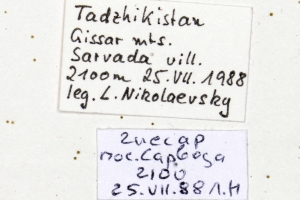 Tadzhikistan
Gissar mts.
Sarvada vill.
2100m 25.VII.1988
leg. L. Nikolaevsky
Гиссар
пос. Сарвода
2100
25.VII.88 Л.Н